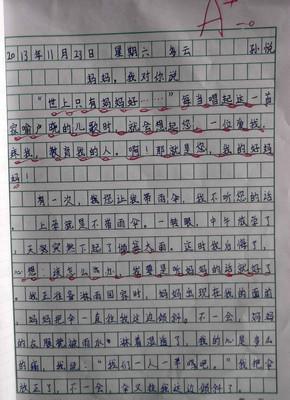 A+
2013年11月23日 星期六 多云 孙悦
妈妈，我对你说
“世上只有妈妈好……”每当唱起这一首
容喻户晓的儿歌时，就会想起您，一位爱我、
疼我、教育我的人。啊！那就是您，我的好妈
妈！
有一次，我您让我带雨伞，我不听您的话
，上学就是不带雨伞。一转眼，中午放学了
，天突然下起了倾盆大雨。这时我后悔了，
心想：该怎么办，我要是听妈妈的话就好了
。我正准备淋雨回家时，妈妈出现在我的面前
，妈妈把伞一直往我这边倾斜。不一会，妈妈
的衣服就被雨水淋湿了。我的心是多么
的痛，我说：“我们一人一半吧。”我把伞
放正了，不一会，伞又往我这边倾斜了。